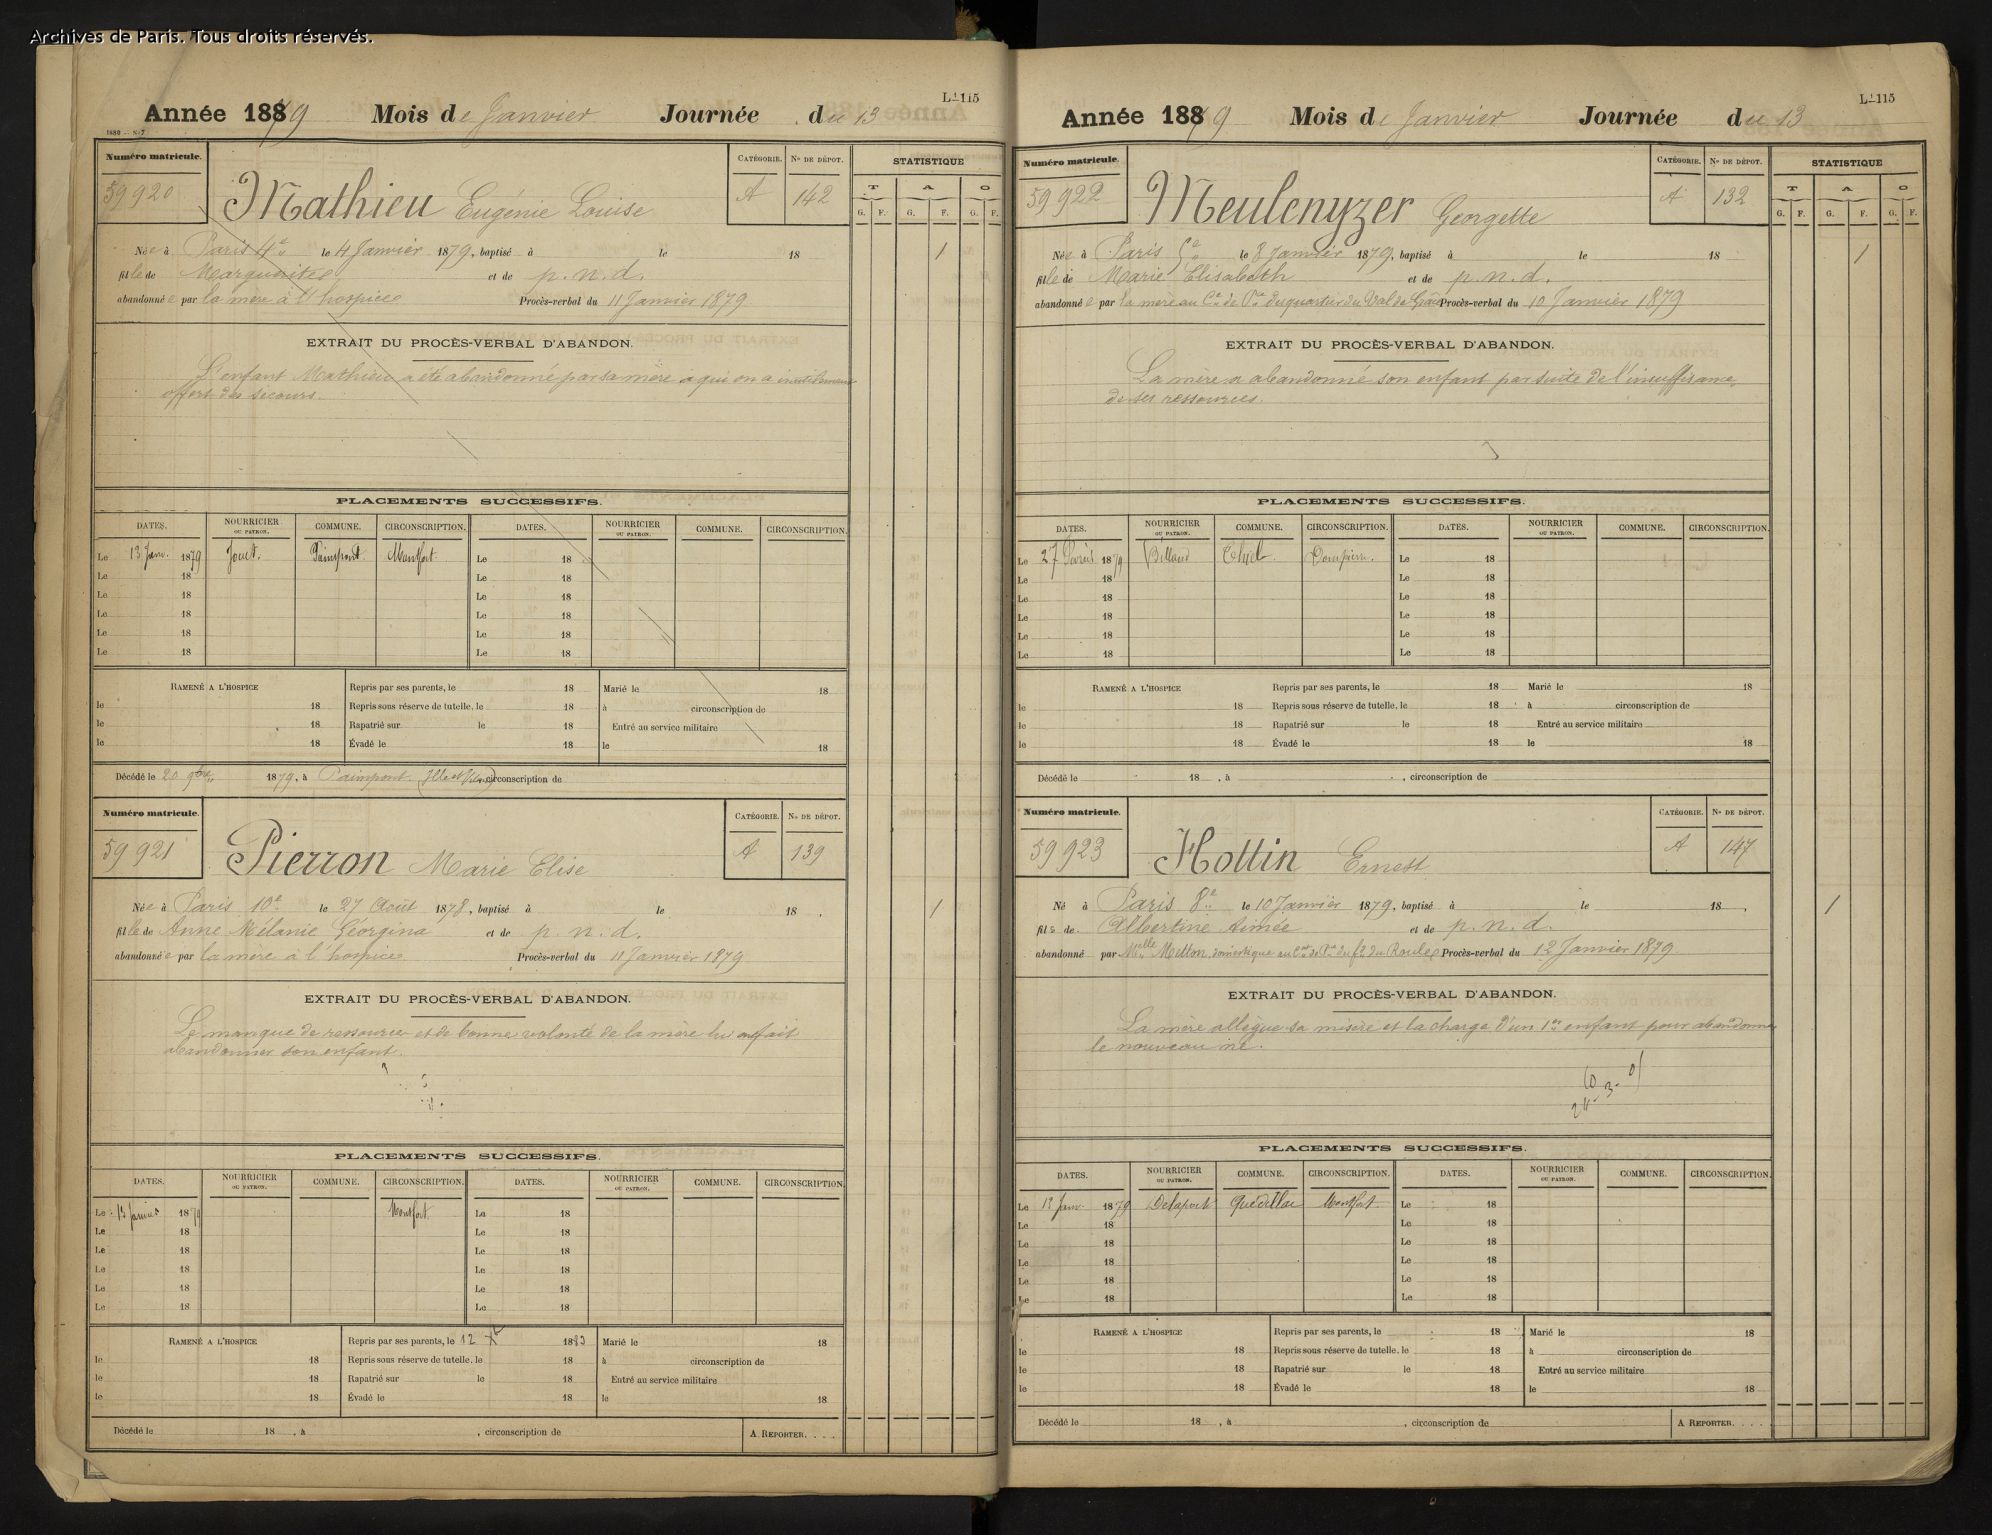 Archives de Paris. Tous droits réservés.
Lt 115
Année 1879 Mois de Janvier Journée du 13
1880 — S-7
Numéro matricule.
59920
Mathieu Eugénie Louise
CATÉGORIE.
A
No DE DÉPOT.
142
STATISTIQUE
T A O
G. F. G. F. G. F.
Née à Paris 4e le 4 Janvier 1879, baptisé à le 18
1
fille de Marguerite et de p. n. d.
abandonnée par la mère à l'hospice Procès-verbal du 11 Janvier 1879
EXTRAIT DU PROCÈS-VERBAL D'ABANDON.
L'enfant Mathieu a été abandonné par sa mère a qui on a inutilement
offert des secours.
PLACEMENTS SUCCESSIFS.
DATES. NOURRICIER OU PATRON. COMMUNE. CIRCONSCRIPTION. DATES. NOURRICIER OU PATRON. COMMUNE. CIRCONSCRIPTION.
Le 13 Janv. 1879 Jouet. Paimpont. Montfort. Le 18
Le 18 Le 18
Le 18 Le 18
Le 18 Le 18
Le 18 Le 18
Le 18 Le 18
RAMENÉ A L'HOSPICE Repris par ses parents, le 18 Marié le 18
le 18 Repris sous réserve de tutelle, le 18 à circonscription de
le 18 Rapatrié sur le 18 Entré au service militaire
le 18 Évadé le 18 le 18
Décédé le 20 9bre 1879, à Paimpont (Ille et Vil.) circonscription de
Numéro matricule.
59921
Pierron Marie Elise
CATÉGORIE.
A
No DE DÉPOT.
139
Née à Paris 10e le 27 Août 1878, baptisé à le 18
1
fille de Anne Mélanie Géorgina et de p. n. d.
abandonnée par la mère à l'hospice Procès-verbal du 11 Janvier 1879
EXTRAIT DU PROCÈS-VERBAL D'ABANDON.
Le manque de ressources et de bonne volonté de la mère lui ont fait
abandonner son enfant.
PLACEMENTS SUCCESSIFS.
DATES. NOURRICIER OU PATRON. COMMUNE. CIRCONSCRIPTION. DATES. NOURRICIER OU PATRON. COMMUNE. CIRCONSCRIPTION.
Le 13 Janvier 1879 Montfort. Le 18
Le 18 Le 18
Le 18 Le 18
Le 18 Le 18
Le 18 Le 18
Le 18 Le 18
RAMENÉ A L'HOSPICE Repris par ses parents, le 12 Xe 1883 Marié le 18
le 18 Repris sous réserve de tutelle, le 18 à circonscription de
le 18 Rapatrié sur le 18 Entré au service militaire
le 18 Évadé le 18 le 18
Décédé le 18 , à , circonscription de A REPORTER. . . .
Lt 115
Année 1879 Mois de Janvier Journée du 13
Numéro matricule.
59922
Meulenyzer Georgette
CATÉGORIE.
A
No DE DÉPOT.
132
STATISTIQUE
T A O
G. F. G. F. G. F.
Née à Paris 5e le 8 Janvier 1879, baptisé à le 18
1
fille de Marie Elisabeth et de p. n. d.
abandonnée par la mère au Cre de Pce du quartier du Val de Grâce Procès-verbal du 10 Janvier 1879
EXTRAIT DU PROCÈS-VERBAL D'ABANDON.
La mère a abandonné son enfant par suite de l'insuffisance
de ses ressources.
PLACEMENTS SUCCESSIFS.
DATES. NOURRICIER OU PATRON. COMMUNE. CIRCONSCRIPTION. DATES. NOURRICIER OU PATRON. COMMUNE. CIRCONSCRIPTION.
Le 27 1879 Billaud Thiel. Dompierre. Le 18
Le 18 Le 18
Le 18 Le 18
Le 18 Le 18
Le 18 Le 18
Le 18 Le 18
RAMENÉ A L'HOSPICE Repris par ses parents, le 18 Marié le 18
le 18 Repris sous réserve de tutelle, le 18 à circonscription de
le 18 Rapatrié sur le 18 Entré au service militaire
le 18 Évadé le 18 le 18
Décédé le 18 , à , circonscription de
Numéro matricule.
59923
Hottin Ernest
CATÉGORIE.
A
No DE DÉPOT.
147
Né à Paris 8e le 10 Janvier 1879, baptisé à le 18
1
fils de Albertine Aimée et de p. n. d.
abandonné par Melle Mitton, domestique au Cat de Pce du fg du Roule Procès-verbal du 12 Janvier 1879
EXTRAIT DU PROCÈS-VERBAL D'ABANDON.
La mère allègue sa misère et la charge d'un 1er enfant pour abandonner
le nouveau né.
PLACEMENTS SUCCESSIFS.
DATES. NOURRICIER OU PATRON. COMMUNE. CIRCONSCRIPTION. DATES. NOURRICIER OU PATRON. COMMUNE. CIRCONSCRIPTION.
Le 13 Janv. 1879 Delaport Quédillac Montfort. Le 18
Le 18 Le 18
Le 18 Le 18
Le 18 Le 18
Le 18 Le 18
Le 18 Le 18
RAMENÉ A L'HOSPICE Repris par ses parents, le 18 Marié le 18
le 18 Repris sous réserve de tutelle, le 18 à circonscription de
le 18 Rapatrié sur le 18 Entré au service militaire
le 18 Évadé le 18 le 18
Décédé le 18 , à , circonscription de A REPORTER. . . .